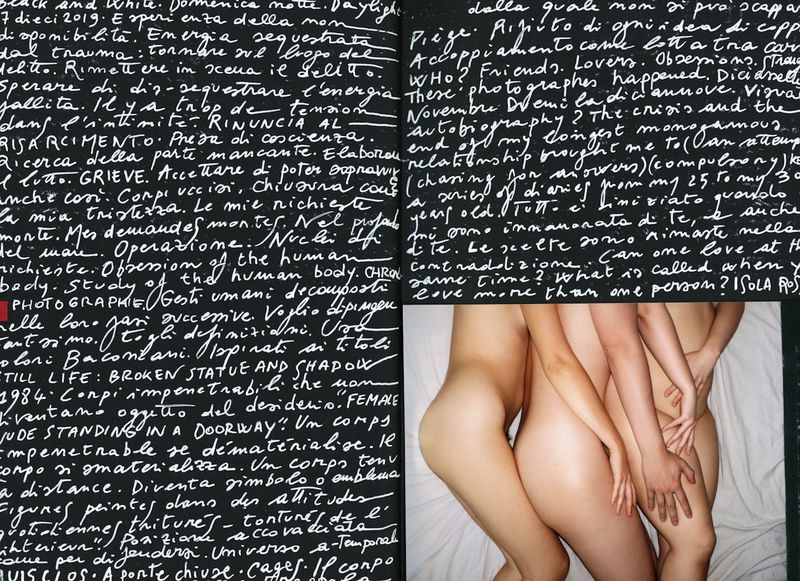 Black and White. Domenica notte. Daylight
7 dieci 2019. Esperienza della non
disponibilità. Energia sequestrata
dal trauma. Tornare sul luogo del
delitto. Rimettere in scena il delitto.
Sperare di dis-sequestrare l'energia
fallita. Il y a trop de tension
dans l'intimité. RINUNCIA AL
RISARCIMENTO. Presa di coscienza
Ricerca della parte mancante. Elaborare
il lutto. GRIEVE. Accettare di poter sopravvi
anche così. Corpi uccisi, chiusura
la mia tristezza. Le mie richieste
morte. Mes demandes mortes. Nel profondo
del mare. Operazione. Nuclei di
richieste. Obsession of the human
body. Study of the human body. CHRON
PHOTOGRAPHIE. Gesti umani decomposti
nelle loro fasi successive. Voglio dipinger
tantissimo. Togli definizioni. Usa
colori Baconiani. Ispirati ai titoli
STILL LIFE: BROKEN STATUE AND SHADOW
1984. Corpi impenetrabili che non
diventano oggetto del desiderio. "FEMALE
NUDE STANDING IN A DOORWAY". Un corps
impenetrable se dématérialise. Il
corpo si smaterializza. Un corps tenu
a distance. Diventa simbolo o emblema
Figures peintes dans des attitudes
quotidiennes triturés - torturés de l'
intérieur". Posizione accovacciata
come per difendersi. Universo a-temporale
HUIS CLOS. A porte chiuse. Cages. Il corpo
dalla quale non si può scappare
Piège. Rifiuto di ogni idea di coppia
Accoppiamento come lotta tra
WHO? Friends. Lovers. Obsessions. Strangers
These photographer happened. Diciassette
Novembre Duemiladiciannove.
autobiography? The crisis and the
end of my longest monogamous
relationship brought me to (an attempt
(chasing for answers) (compulsory)
a series of diaries from my 25 to my 30
years old. Tutto è iniziato quando
mi sono innamorata di te, e anche
di te. Le scelte sono rimaste nella
contraddizione. Can one love at the
same time? What is called when you
love more than one person? ISOLA ROS